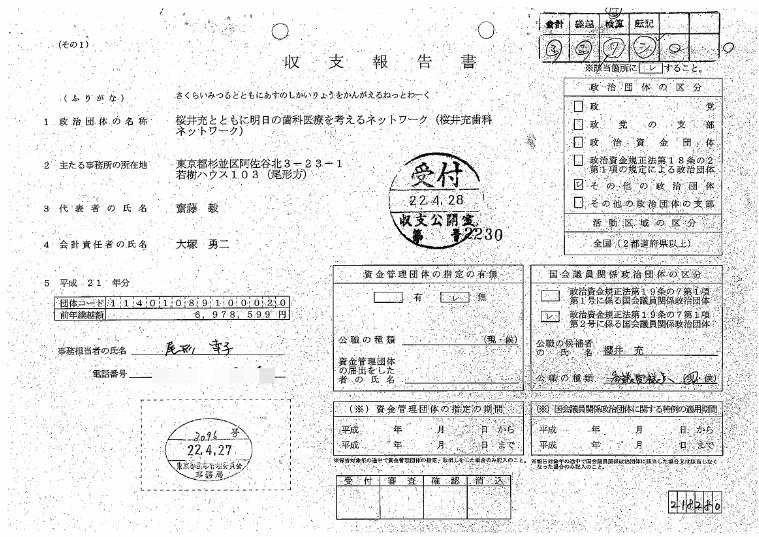 (その1)
収支報告書
(ふりがな) さくらいみつるとともにあすのしかいりょうをかんがえるねっとわーく
1 政治団体の名称 桜井充とともに明日の歯科医療を考えるネットワーク(桜井充歯科
ネットワーク)
2 主たる事務所の所在地 東京都杉並区阿佐谷北3-23-1
若樹ハウス103(尾形方)
3 代表者の氏名 齋藤 毅
4 会計責任者の氏名 大塚 勇二
5 平成 21 年分
団体コード 1140108910020
前年繰越額 6,978,599 円
事務担当者の氏名
電話番号
3096 号
22.4.27
東京都選挙管理委員会
事務局
受付
22.4.28
収支公開室
第 号2230
検算 転記
※該当箇所に レ すること。
政治団体の区分
政党
政党の支部
政治資金団体
政治資金規正法第18条の2
第1項の規定による政治団体
レ その他の政治団体
その他の政治団体の支部
活動区域の区分
全国(2都道府県以上)
資金管理団体の指定の有無
有 レ 無
公職の種類 (現・候)
資金管理団体
の届出をした
者の氏名
国会議員関係政治団体の区分
政治資金規正法第19条の7第1項
第1号に係る国会議員関係政治団体
レ 政治資金規正法第19条の7第1項
第2号に係る国会議員関係政治団体
公職の候補者
の氏名 櫻井 充
公職の種類 参議院議員 (現・候)
(※)資金管理団体の指定の期間
平成 年 月 日から
平成 年 月 日まで
(※)国会議員関係政治団体に関する特例の適用期間
平成 年 月 日から
平成 年 月 日まで
受付 審査 確認 消込
218280